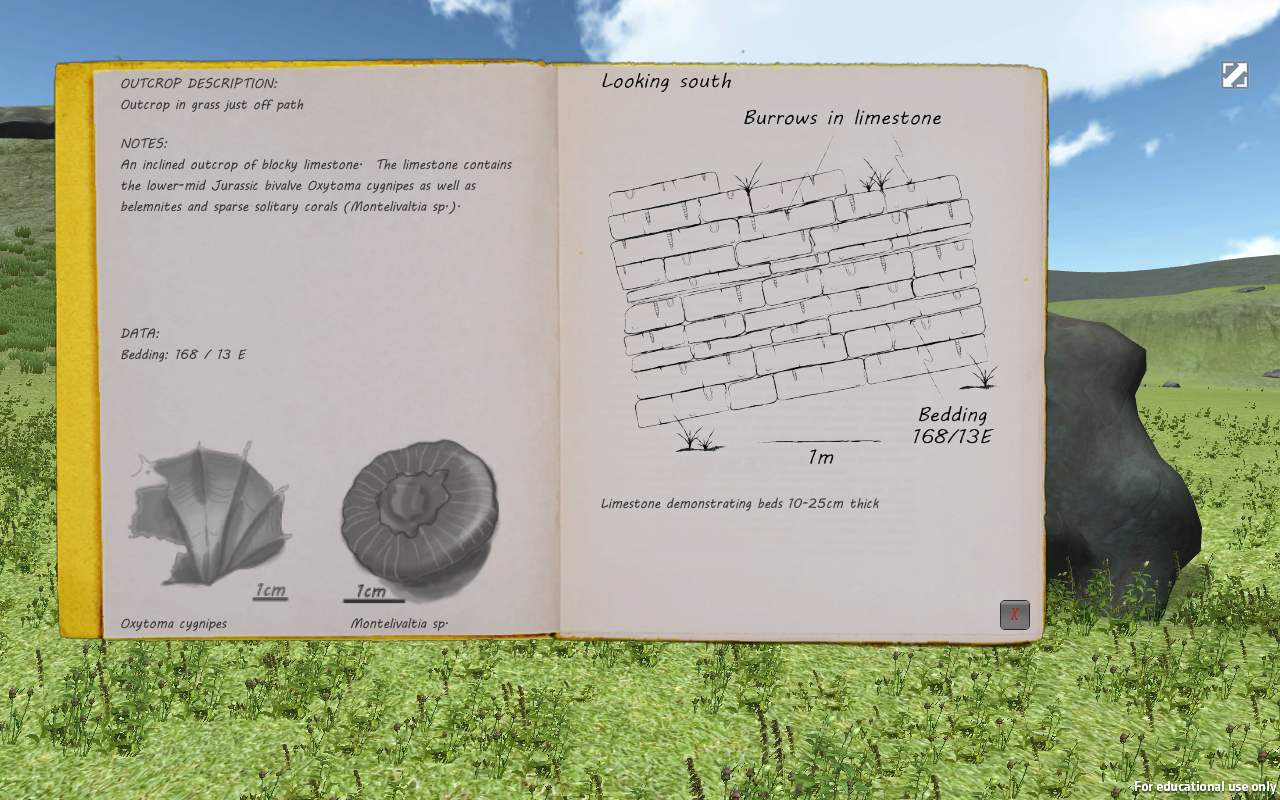 OUTCROP DESCRIPTION:
Outcrop in grass just off path
NOTES:
An inclined outcrop of blocky limestone. The limestone contains
the lower-mid Jurassic bivalve Oxytoma cygnipes as well as
belemnites and sparse solitary corals (Montelivaltia sp.).
DATA:
Bedding: 168 / 13 E
1cm
1cm
Oxytoma cygnipes
Montelivaltia sp.
Looking south
Burrows in limestone
Bedding
168/13E
1m
Limestone demonstrating beds 10-25cm thick
X
For educational use only